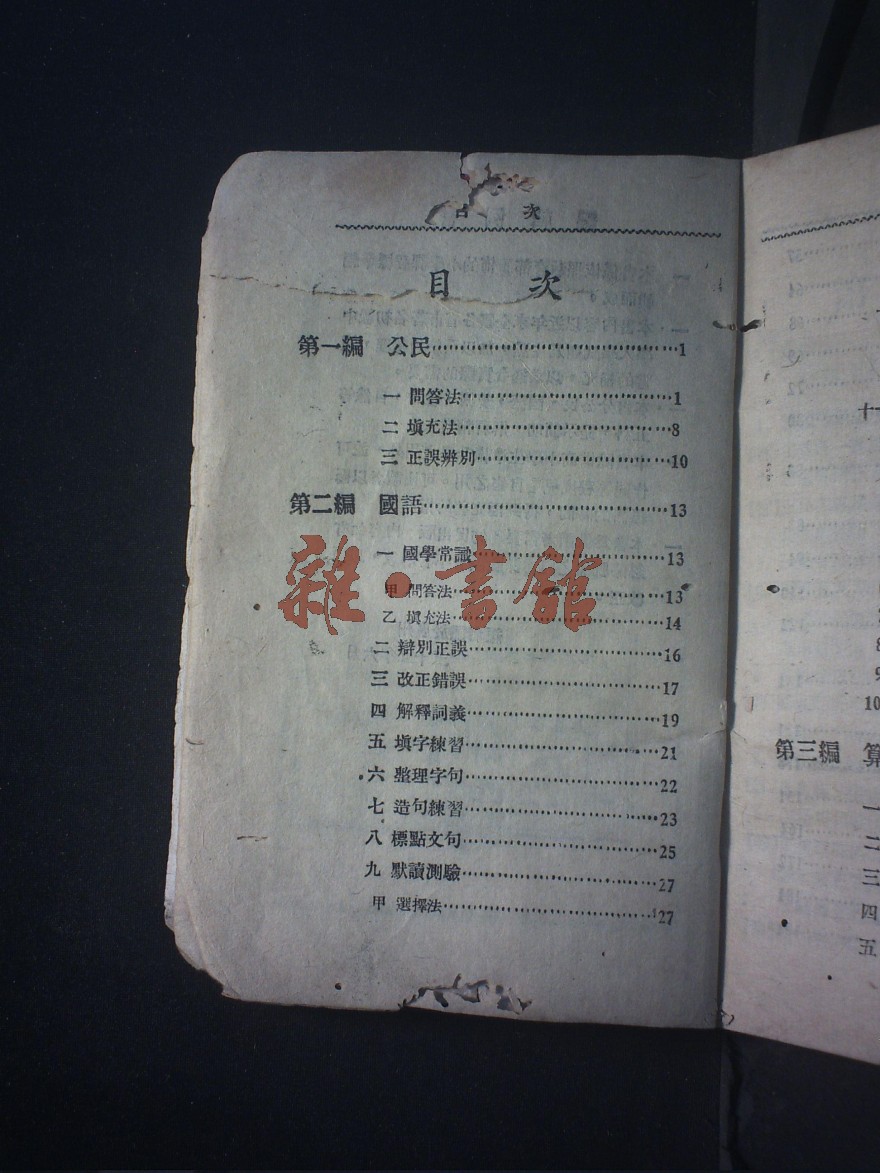 目 次
目 次
第一編 公民……1
一 問答法……1
二 塡充法……8
三 正誤辨別……10
第二編 國語……13
一 國學常識……13
甲 問答法……13
乙 塡充法……14
二 辯別正誤……16
三 改正錯誤……17
四 解釋詞義……19
五 塡字練習……21
六 整理字句……22
七 造句練習……23
八 標點文句……25
九 默讀測驗……27
甲 選擇法……27
雜·書館
十
10
第三編 算
一
二
三
四
五